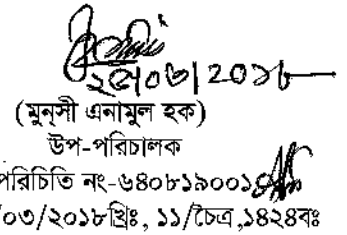 ২৫/০৩/২০১৮
(মুন্সী এনামুল হক)
উপ-পরিচালক
পরিচিতি নং-৬৪০৮১৯০০১
/০৩/২০১৮খ্রিঃ, ১১/চৈত্র,১৪২৪বঃ